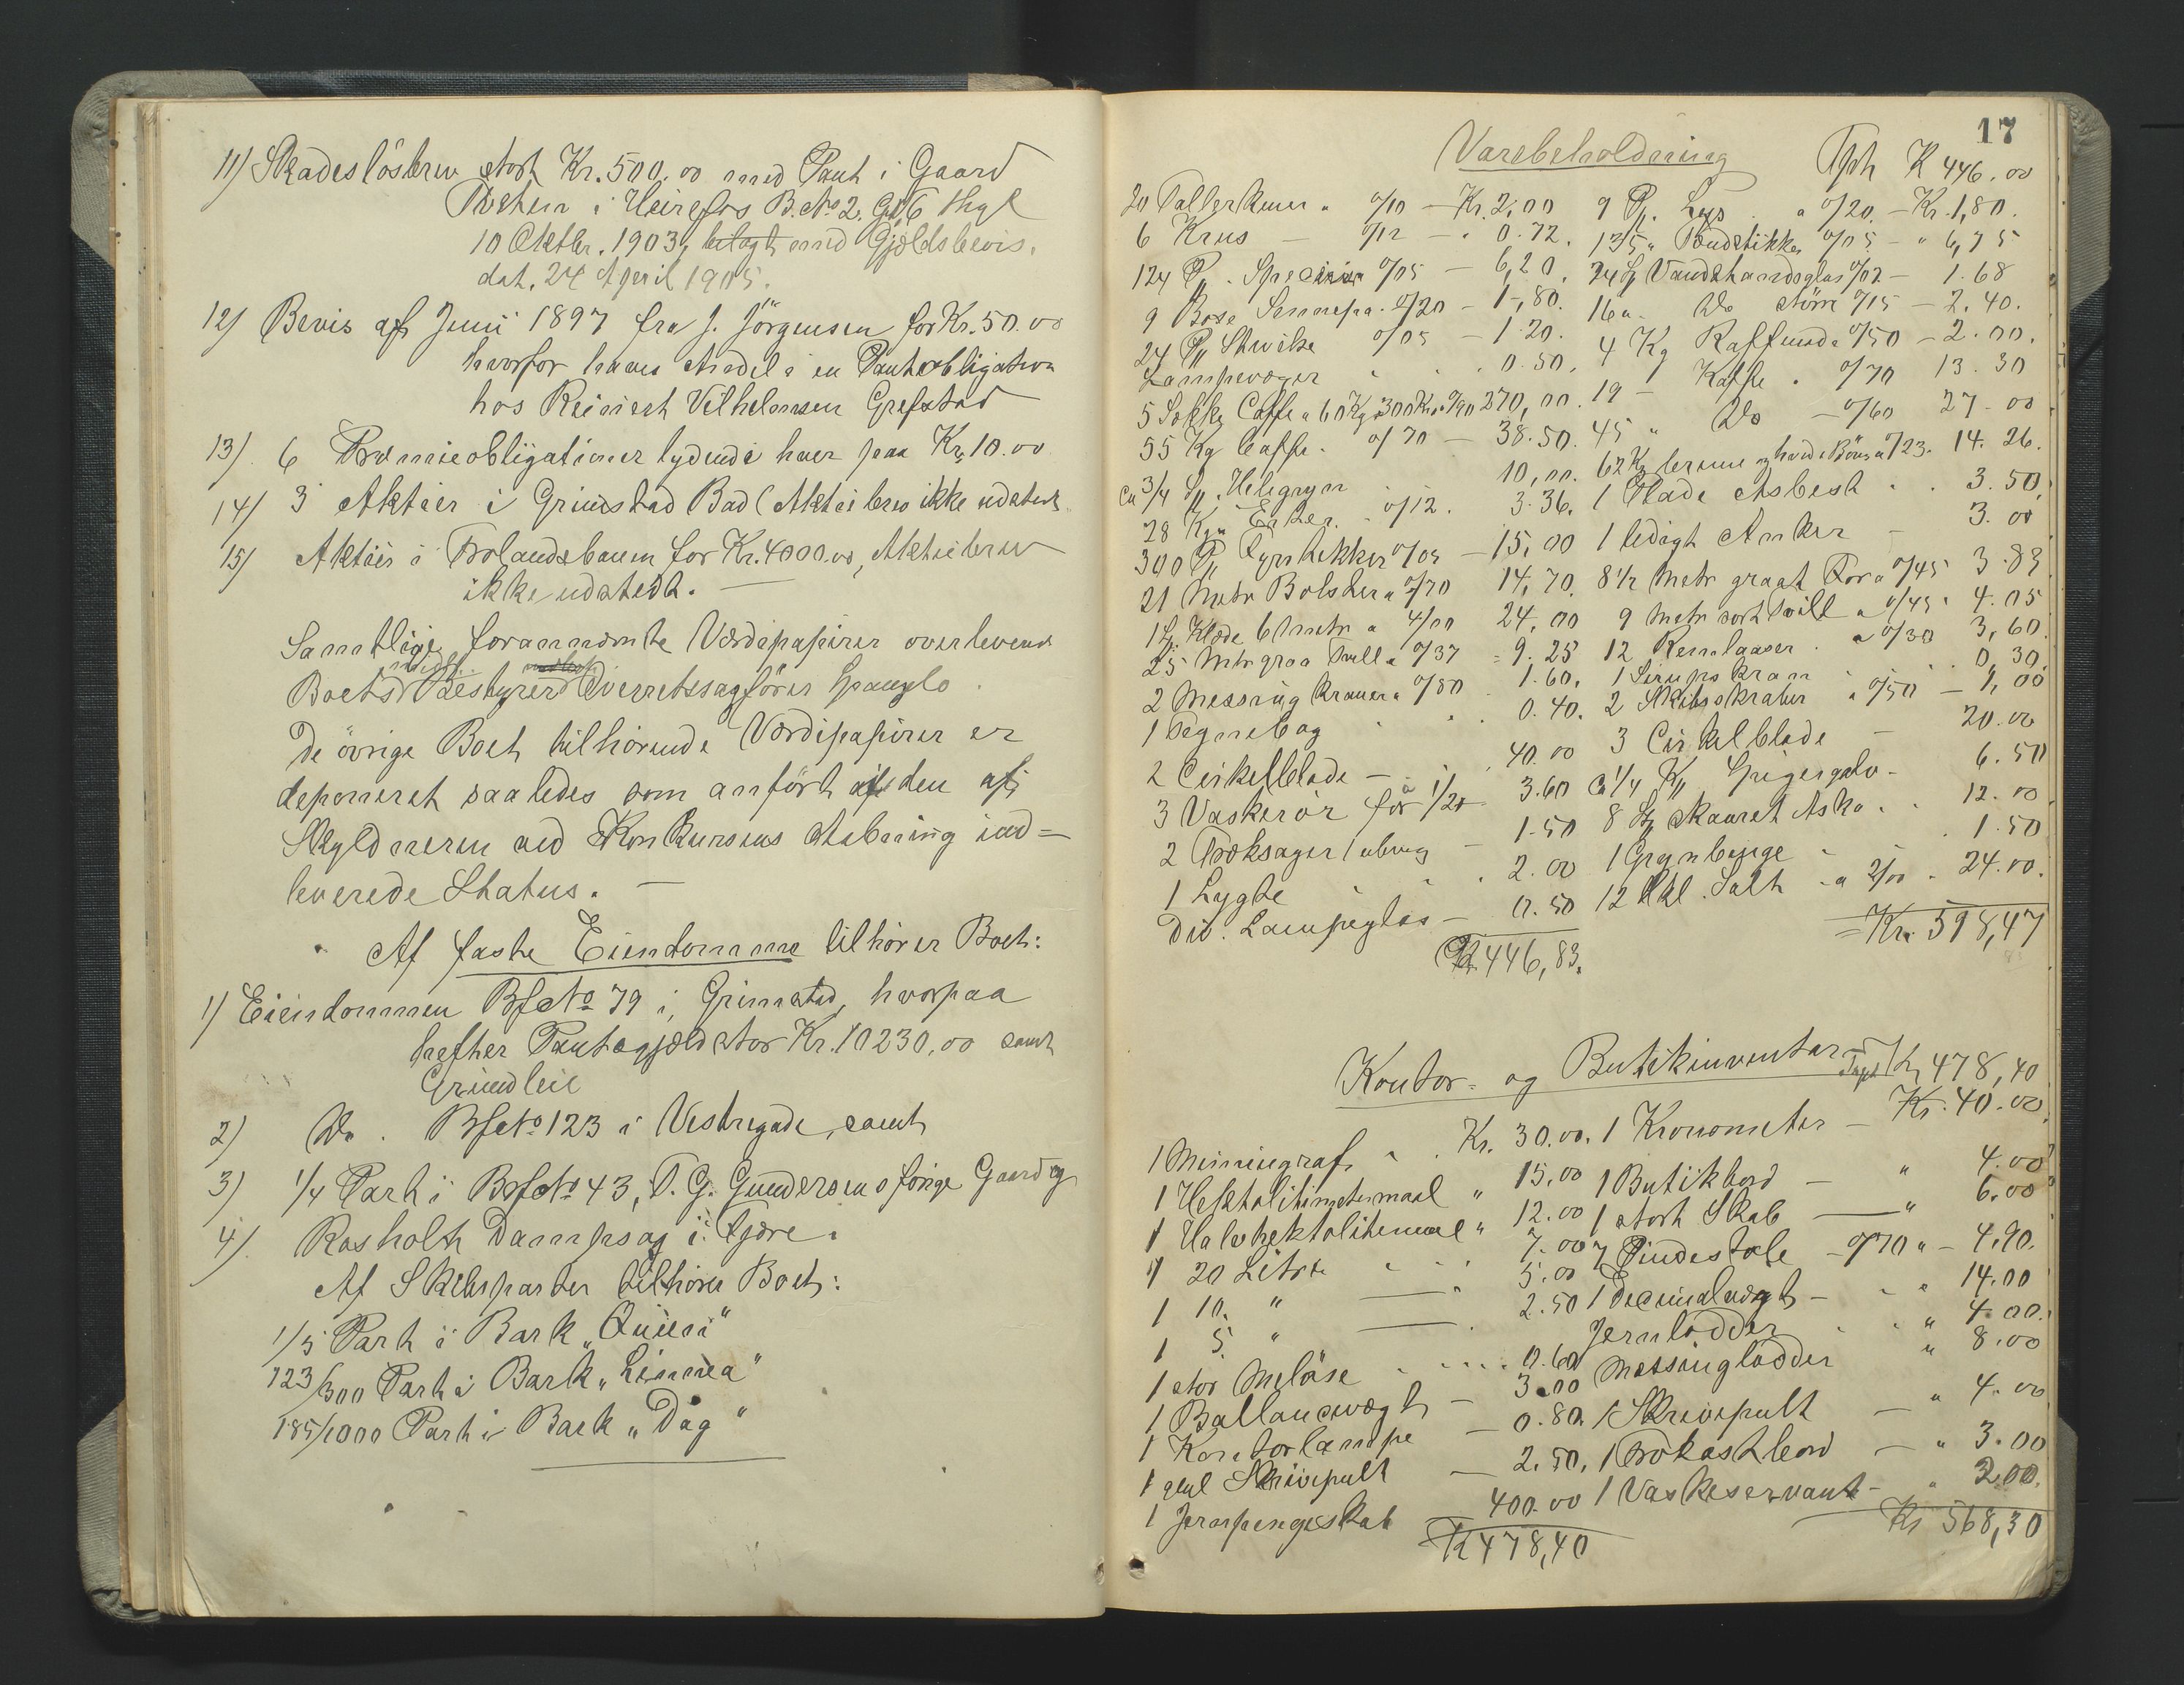 11) Skadeslösbrev stort Kr. 500.00 med Pant i Gaard
i Heirefos B. No 2. G. 6 thgl
10 Oktbr. 1903, bilagt med Gjældsbevis.
dat. 24 April 1905.
12) Bevis af Juni 1897 fra J. Jörgensen for Kr. 50.00
hvorfor haves Andel i en Pantobligation
hos Reinert Vilhelmsen Grefstad
13) 6 Præmieobligationer lydende hver paa Kr. 10.00
14) 3 Aktier i Grimstad Bad (Aktiebrev ikke udstedt
15) Aktier i Trolandsbaum for Kr. 4000.00, Aktiebrev
ikke udstedt. —
Samtlige forannævnte Værdipapirer overleveret
Boets midl. Bestyrer Overretssagförer Spanglo
De övrige Boet tilhörende Værdipapirer er
deponeret saaledes som anfört i den af
Skyldneren ved Konkursens Aabning ind=
leverede Status. —
Af faste Eiendomme tilhörer Boet:
1) Eiendommen Bf No 79 i Grimstad, hvorpaa
hefter Pantegjæld stor Kr. 10230.00 samt
Grundleie
2) Do. Bf No 123 i Vestregade, samt
3) 1/4 Part i Bf No 43, T. G. Gundersens forige Gaard og
4) Rosholt Dampsag i Fjære.
Af Skibsparter tilhörer Boet:
1/5 Part i Bark "Quieni"
123/300 Part i Bark "Linnea"
185/1000 Part i Bark "Dag"
17
Varebeholdning
Tpt K 446.00
20 Tallerkener a 0/10 — Kr. 2,00
6 Krus — 0/12 — " 0.72.
124 P. 0/05 — 6,20.
9 Bose Sennep a 0/20 — 1,80.
24 P. Stivelse 0/05 — 1.20.
Lampevæger 0.50.
5 Sække Caffe a 60 Kg 300 Kg a 0/90 270,00.
55 Kg Caffe. 0/70 — 38.50.
ca 3/4 S. Helegryn 10,00.
28 Kg. Erter. 0/12. 3.36.
300 P. Fyrstikker 0/05 — 15,00
21 Metr Bolster a 0/70 14,70.
1 St. Klæde 6 metr a 4/00 24,00
25 Mtr graa Tvill a 0/37 = 9.25
2 Messing kraner a 0/80 1.60.
1 Tegnebog 0.40.
2 Cirkelblade — 40.00
3 Vaskerör for a 1/20 3.60
2 Træksager (ubrug — 1.50
1 Lygte 2.00
Div. Lampeglas — 0.50
Kr 446,83.
9 P. Lys a 0/20. — Kr. 1,80.
135 " Tændstikker 0/05 — " 6,75
24 St. Vandstandsglas 0/07 — 1.68
16 " Do större 0/15 — 2.40.
4 Kg Raffinade 0/50 — 2.00.
19 — Kaffe . 0/70 13.30
45 " Do — 0/60 27.00
62 Kg brune og hvide Bönner a 0/23. 14.26.
1 Plade Asbest . . 3.50.
1 ledigt Anker — 3.00
8 1/2 Metr graat For a 0/45 3.83
9 Metr sort Tvill a 0/45 4.05
12 Remlaaser a 0/30 3,60.
1 Sirupskran 0,30.
2 Skibsskraber a 0/50 — 1,00
3 Cirkelblade — 20.00
ca 1/4 K. Spigergalv. 6.50
8 St. skaaret Ask . 12.00
1 Grynbinge 1.50
12 Hkl. Salt a 2/00 . 24.00.
= Kr. 598,47
Kontor- og Butikinventar
Tpt Kr 478,40
1 Mimiograf . Kr. 30.00.
1 Hektolitermaal " 15,00
1 Halvhektolitermaal " 12.00
1 20 Liter 7.00
1 10. " — 5.00
1 5. " — 2.50
1 stor Meläse 0.60
1 Ballancevægt — 3.00
1 Kontorlampe — 0.80.
1 gul Skrivepult — 2.50.
1 Jernpengeskab 400.00
K 478,40
1 Kronometer — Kr. 40.00.
1 Butikbord — " 4.00
1 stort Skab — " 6.00
7 Pindestole — 0/70 " — 4.90.
1 Decimalvægt — 14.00
Jernlodder " 4.00.
Messinglodder " 8.00
1 Skrivepult — " 4.00
1 Frokostbord — " 3.00
1 Vaskeservant — " 2.00.
Kr 568,30